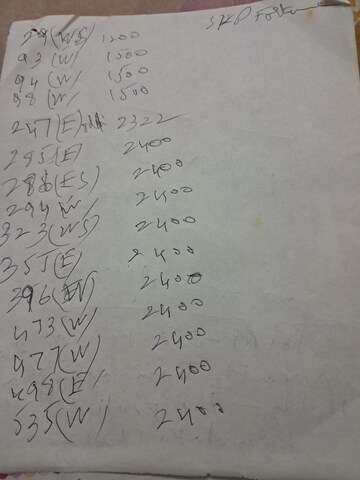 59(WS) 1200
93(W) 1500
94(W) 1500
98(W) 1500
247(E) 2322
285(E) 2400
286(ES) 2400
294(W) 2400
323(WS) 2400
355(E) 2400
396(EN) 2400
473(W) 2400
477(W) 2400
498(E) 2400
535(W) 2400